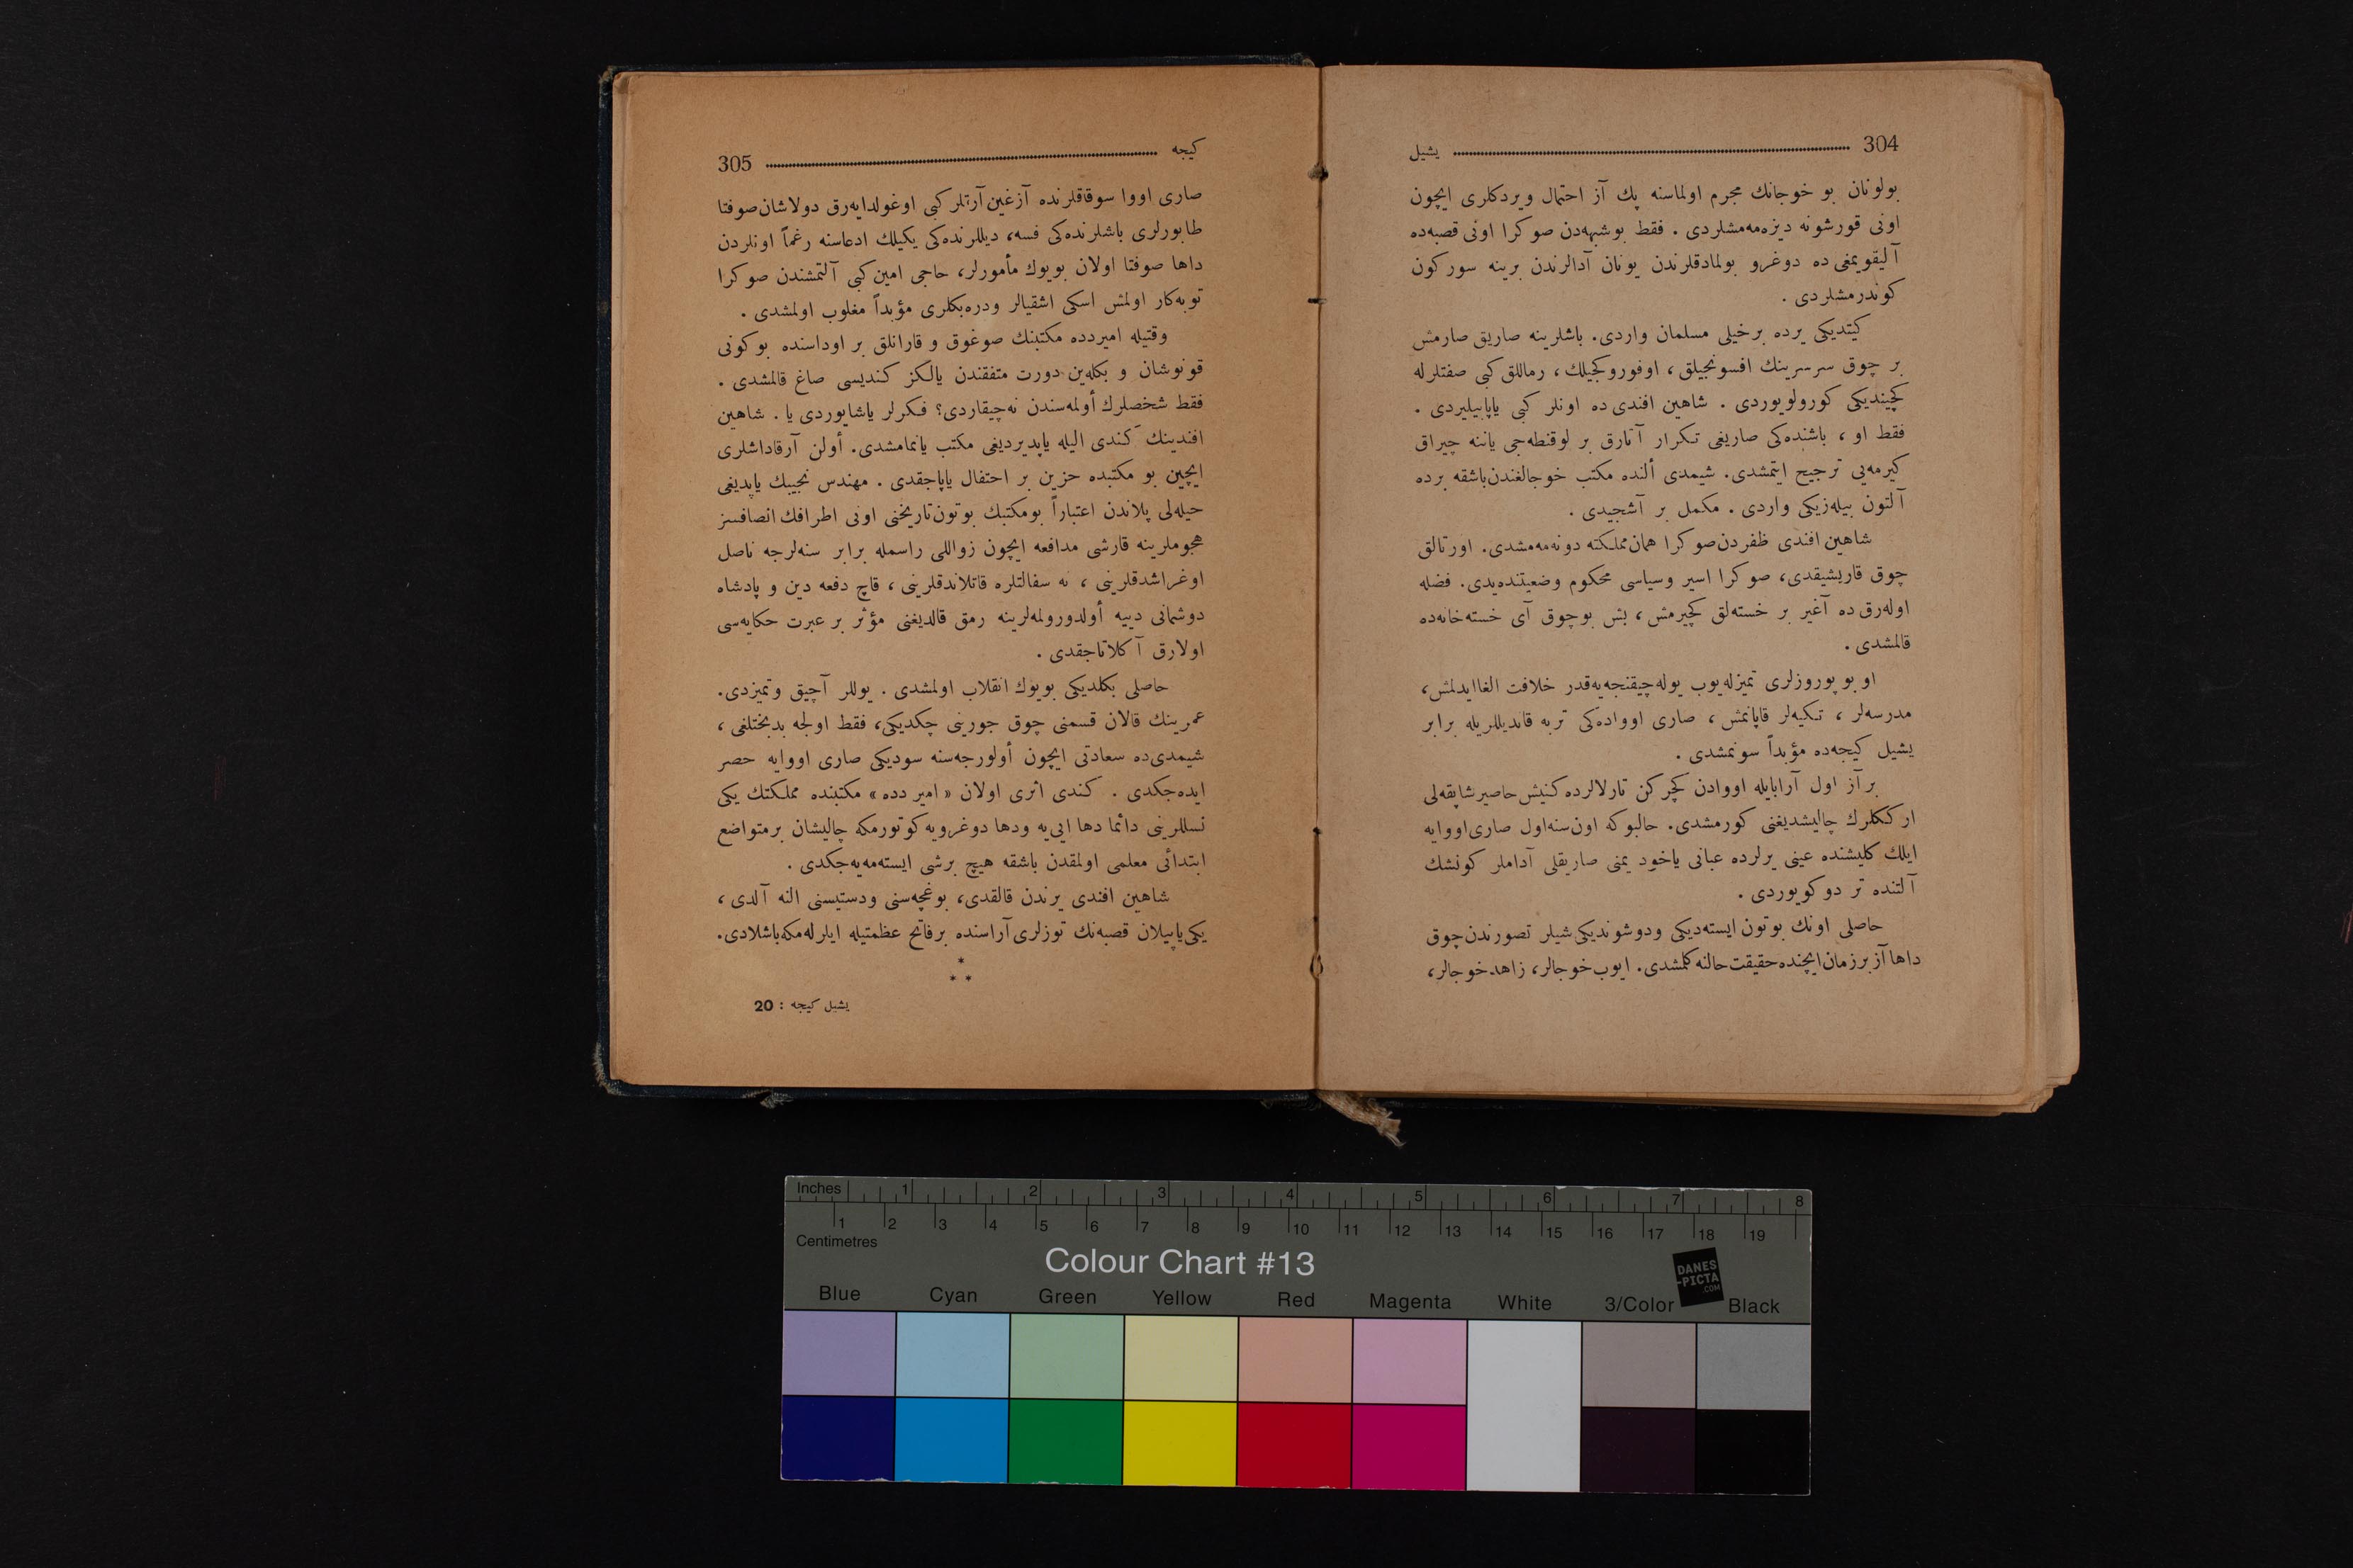 304 يشيل
بولونان بو خوجانك مجرم اولماسنه پك آز احتمال ويردكلرى ايچون
اونى قورشونه ديزه‌مه‌مشلردى . فقط بوشبهه‌دن صوكرا اونى قصبه‌ده
آليقويمغى ده دوغرو بولمادقلرندن يونان آدالرندن برينه سوركون
كوندرمشلردى .
كيتديكى يرده برخيلى مسلمان واردى. باشلرينه صاريق صارمش
بر چوق سرسرينك افسونجيلق ، اوفوروكجيلك ، رماللق كبى صفتلرله
كچينديكى كورولويوردى . شاهين افندى ده اونلر كبى ياپابيليردى .
فقط او ، باشنده‌كى صاريغى تكرار آتارق بر لوقنطه‌جى ياننه چيراق
كيرمه‌يى ترجيح ايتمشدى. شيمدى ألنده مكتب خوجالغندن باشقه برده
آلتون بيله‌زيكى واردى . مكمل بر آشجيدى .
شاهين افندى ظفردن صوكرا همان مملكته دونه‌مه‌مشدى. اورتالق
چوق قاريشيقدى، صوكرا اسير وسياسى محكوم وضعيتنده‌يدى. فضله
اوله‌رق ده آغير بر خسته‌لق كچيرمش ، بش بوچوق آى خسته‌خانه‌ده
قالمشدى .
او بو پوروزلرى تميزله‌يوب يوله‌چيقنجه‌يه‌قدر خلافت الغاايدلمش،
مدرسه‌لر ، تكيه‌لر قاپانمش ، صارى اوواده‌كى تربه قانديللريله برابر
يشيل كيجه‌ده مؤبداً سونمشدى .
برآز اول آرابايله اووادن كچركن تارلالرده كنيش حاصير شاپقه‌لى
ارككلرك چاليشديغنى كورمشدى. حالبوكه اون سنه‌اول صارى‌اووايه
ايلك كليشنده عينى يرلرده عبانى ياخود يمنى صاريقلى آداملر كونشك
آلتنده تر دوكويوردى .
حاصلى اونك بوتون ايسته‌ديكى ودوشونديكى شيلر تصورندن چوق
داها آز برزمان ايچنده حقيقت حالنه كلمشدى. ايوب خوجالر، زاهد خوجالر،
كيجه 305
صارى اووا سوقاقلرنده آزغين آرتلر كبى اوغولدايه‌رق دولاشان صوفتا
طابورلرى باشلرنده‌كى فسه، ديللرنده‌كى يكيلك ادعاسنه رغماً اونلردن
داها صوفتا اولان بويوك مأمورلر، حاجى امين كبى آلتمشندن صوكرا
توبه‌كار اولمش اسكى اشقيالر ودره‌بكلرى مؤبداً مغلوب اولمشدى .
وقتيله اميردده مكتبنك صوغوق و قارانلق بر اوداسنده بو كونى
قونوشان و بكله‌ين دورت متفقندن يالكز كنديسى صاغ قالمشدى .
فقط شخصلرك أولمه‌سندن نه‌چيقاردى؟ فكرلر ياشايوردى يا . شاهين
افندينك كندى اليله ياپديرديغى مكتب يانمامشدى. أولن آرقاداشلرى
ايچين بو مكتبده حزين بر احتفال ياپاجقدى . مهندس نجيبك ياپديغى
حيله‌لى پلاندن اعتباراً بومكتبك بوتون تاريخنى اونى اطرافك انصافسز
هجوملرينه قارشى مدافعه ايچون زواللى راسمله برابر سنه‌لرجه ناصل
اوغراشدقلرينى ، نه سفالتلره قاتلاندقلرينى ، قاچ دفعه دين و پادشاه
دوشمانى دييه أولدورولمه‌لرينه رمق قالديغنى مؤثر بر عبرت حكايه‌سى
اولارق آكلاتاجقدى .
حاصلى بكلديكى بويوك انقلاب اولمشدى . يوللر آچيق وتميزدى.
عمرينك قالان قسمنى چوق جورينى چكديكى، فقط اولجه بدبختلغى ،
شيمدى‌ده سعادتى ايچون أولورجه‌سنه سوديكى صارى اووايه حصر
ايده‌جكدى . كندى اثرى اولان « امير دده » مكتبنده مملكتك يكى
نسللرينى دائما دها ايى‌يه ودها دوغرويه كوتورمكه چاليشان برمتواضع
ابتدائى معلمى اولمقدن باشقه هيچ برشى ايسته‌مه‌يه‌جكدى .
شاهين افندى يرندن قالقدى، بوغچه‌سنى ودستيسنى النه آلدى ،
يكى ياپيلان قصبه‌نك توزلرى آراسنده برفاتح عظمتيله ايلرله‌مكه باشلادى.
*
* *
يشيل كيجه : 20
Inches 1 2 3 4 5 6 7 8
1 2 3 4 5 6 7 8 9 10 11 12 13 14 15 16 17 18 19
Centimetres
Colour Chart #13
DANES
-PICTA
.COM
Blue Cyan Green Yellow Red Magenta White 3/Color Black